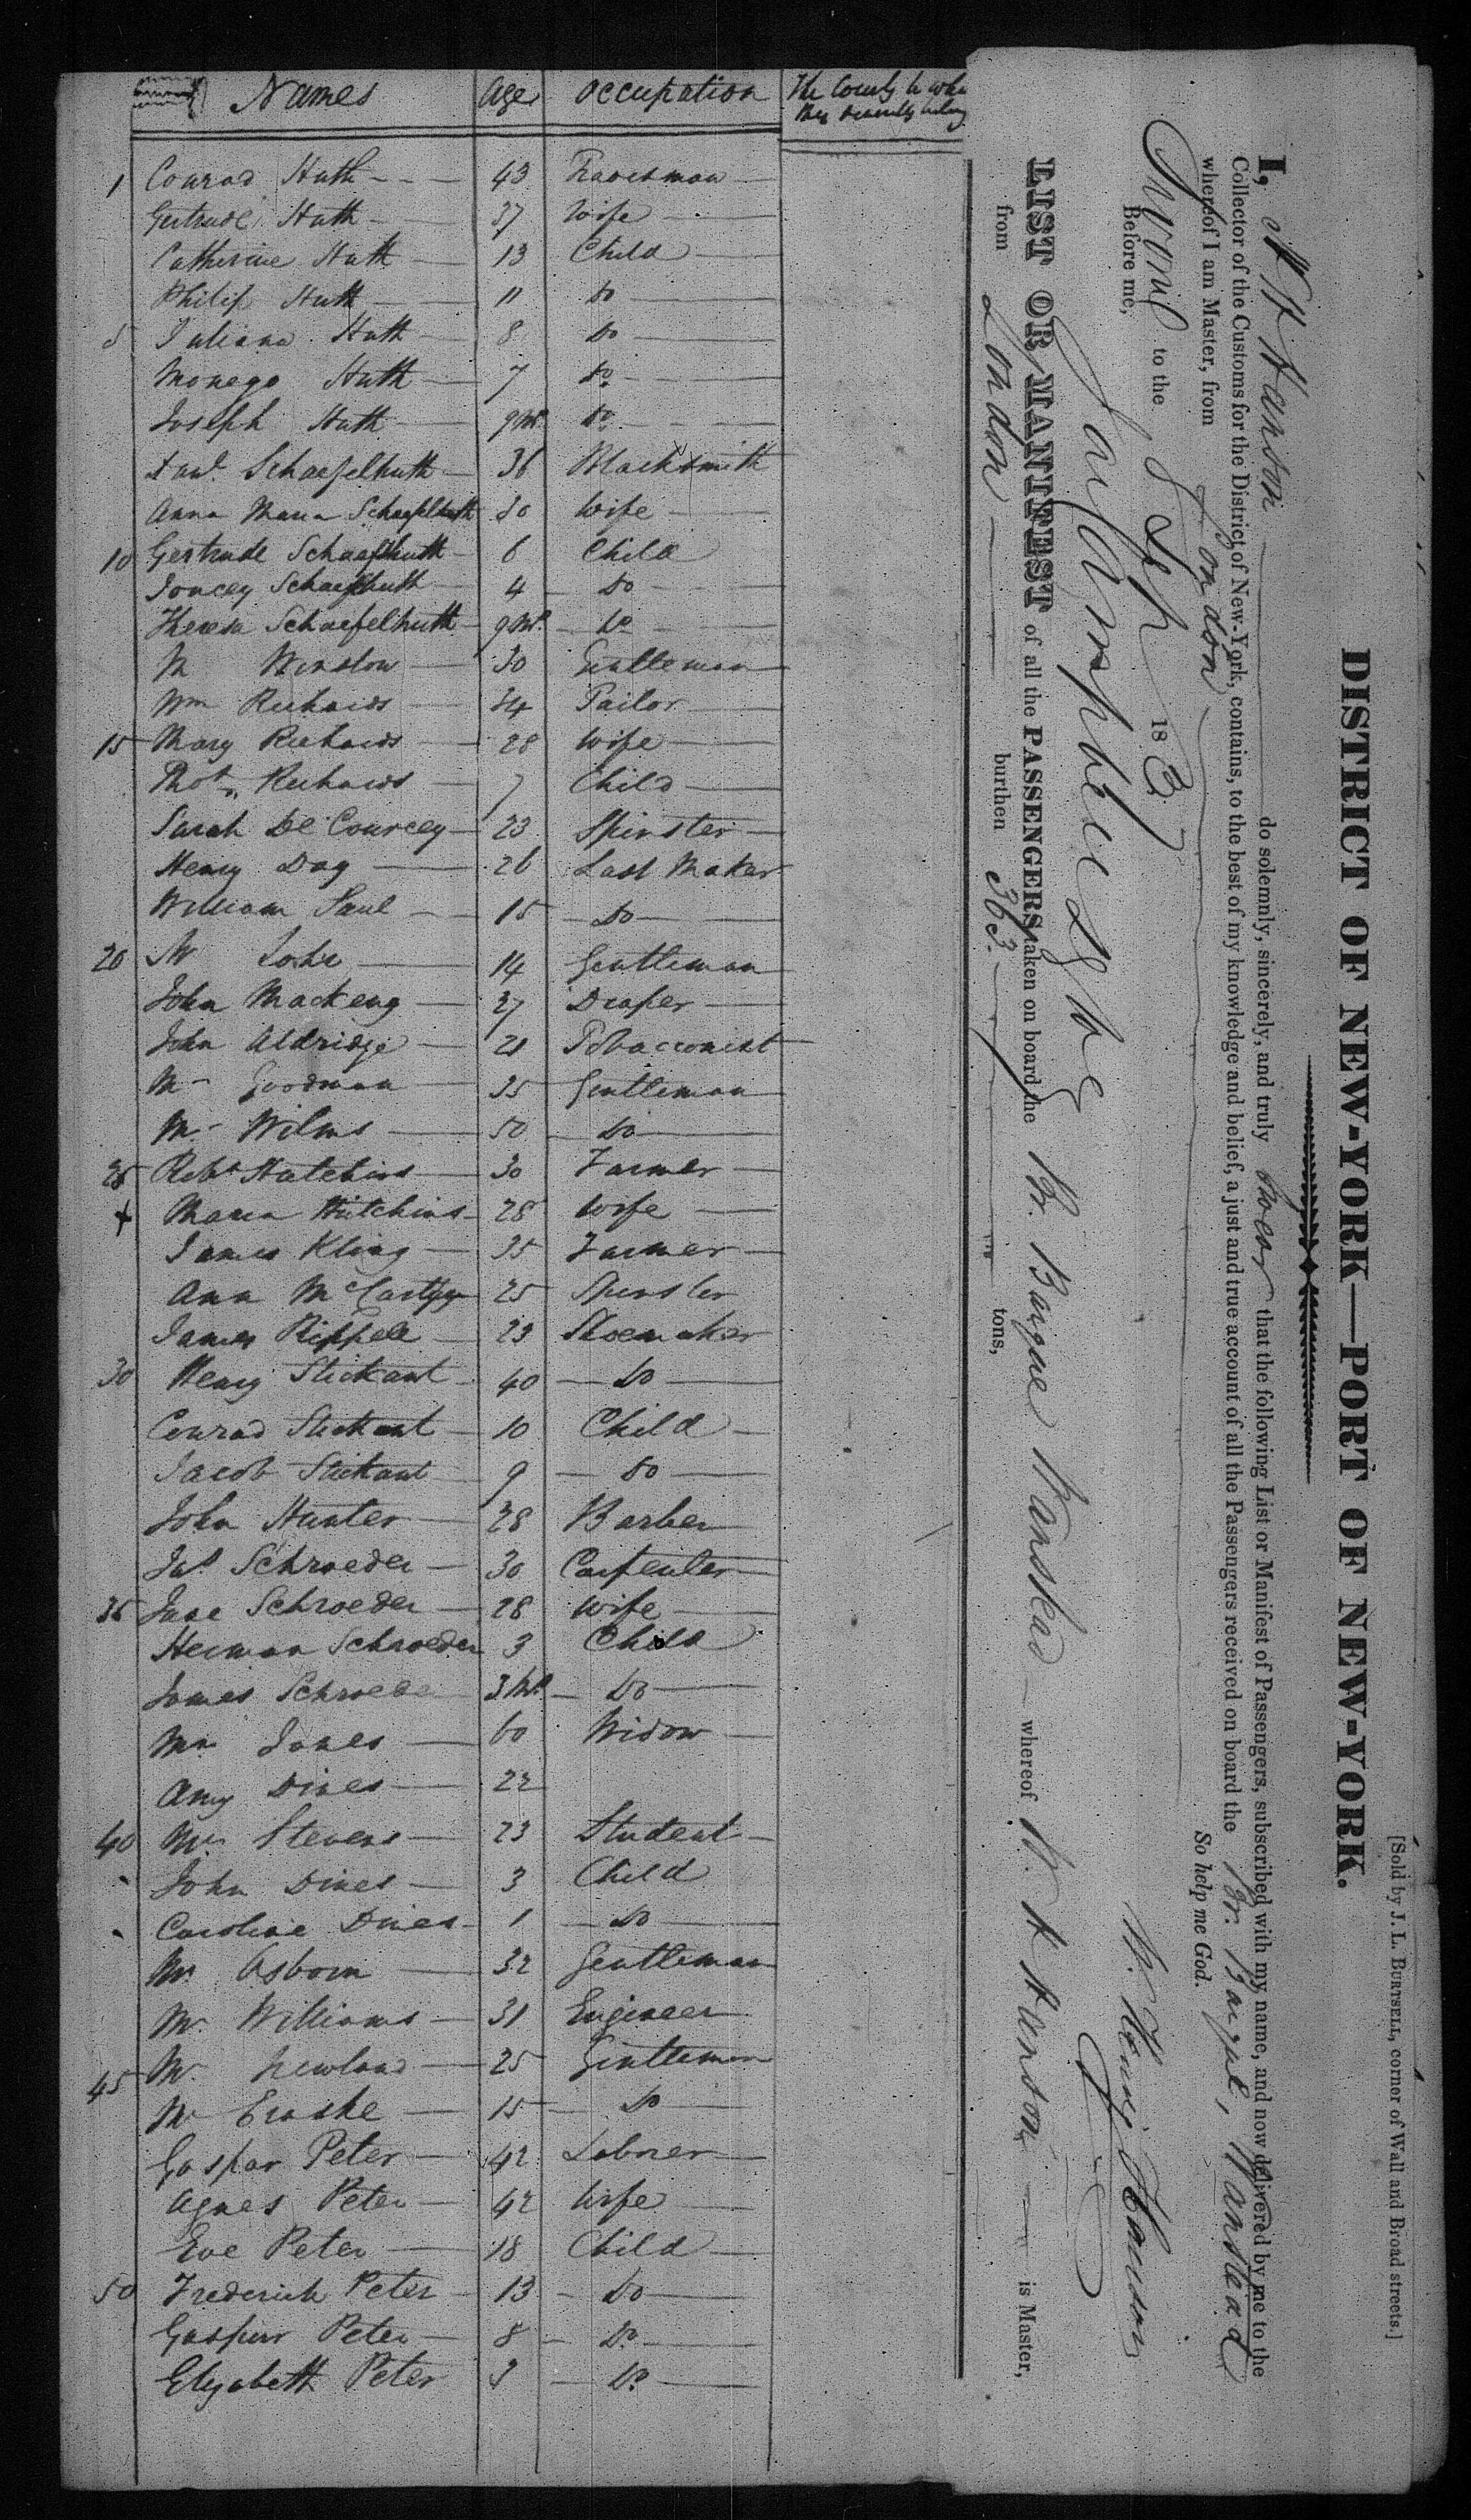 [Sold by J. L. BURTSELL, corner of Wall and Broad streets.]
DISTRICT OF NEW-YORK—PORT OF NEW-YORK.
I, W H Hanson do solemnly, sincerely, and truly swear that the following List or Manifest of Passengers, subscribed with my name, and now delivered by me to the
Collector of the Customs for the District of New-York, contains, to the best of my knowledge and belief, a just and true account of all the Passengers received on board the Br. Barque, Wanstead
whereof I am Master, from London So help me God.
Sworn to the 8 Sep 183
Before me, W. Henry Hanson
LIST OR MANIFEST of all the PASSENGERS taken on board the Br. Barque Wanstead whereof W H Hanson is Master,
from London burthen 363 tons,
Names Age Occupation The County to
1 Conrad Huth 43 Tradesman
Gertrude Huth 37 Wife
Catherine Huth 13 Child
Philip Huth 11 Do
5 Juliana Huth 8 Do
Huth 7 Do
Joseph Huth 9 Mo Do
Schaefelhuth 36 Blacksmith
Anna Maria Schaefelhuth 30 Wife
10 Gertrude Schaefelhuth 6 Child
Schaefelhuth 4 Do
Theresa Schaefelhuth 9 Mo. Do
M Winslow 30 Gentleman
Wm Richards 34 Tailor
15 Mary Richards 28 Wife
Thos. Richards 7 Child
Sarah De Courcey 23 Spinster
Henry Day 26 Last Maker
William Saul 15 Do
20 Mr 14 Gentleman
John Mackeny 27 Draper
John Aldridge 21 Tobacconist
Mr Goodman 35 Gentleman
Mr Wilms 50 Do
25 Robt Hutchins 30 Farmer
+ Maria Hutchins 28 Wife
James Kling 35 Farmer
Ann McCarthy 25 Spinster
James Rippele 23 Shoemaker
30 Henry Stickant 40 Do
Conrad Stickant 10 Child
Jacob Stickant 9 Do
John Hunter 28 Barber
Jas Schroeder 30 Carpenter
35 Jane Schroeder 28 Wife
Herman Schroeder 3 Child
James Schroeder 3 Mo Do
Mrs Jones 60 Widow
Amy Dines 22
40 Mr Stevens 23 Student
John Dines 3 Child
Caroline Dines 1 Do
Mr Osborn 32 Gentleman
Mr. Williams 31 Engineer
45 Mr. Newland 25 Gentleman
Mr Erashe 15 Do
Gaspar Peter 42 Labrer
Agnes Peter 42 Wife
Eve Peter 18 Child
50 Frederick Peter 13 Do
Gaspar Peter 8 Do
Elizabeth Peter 3 Do